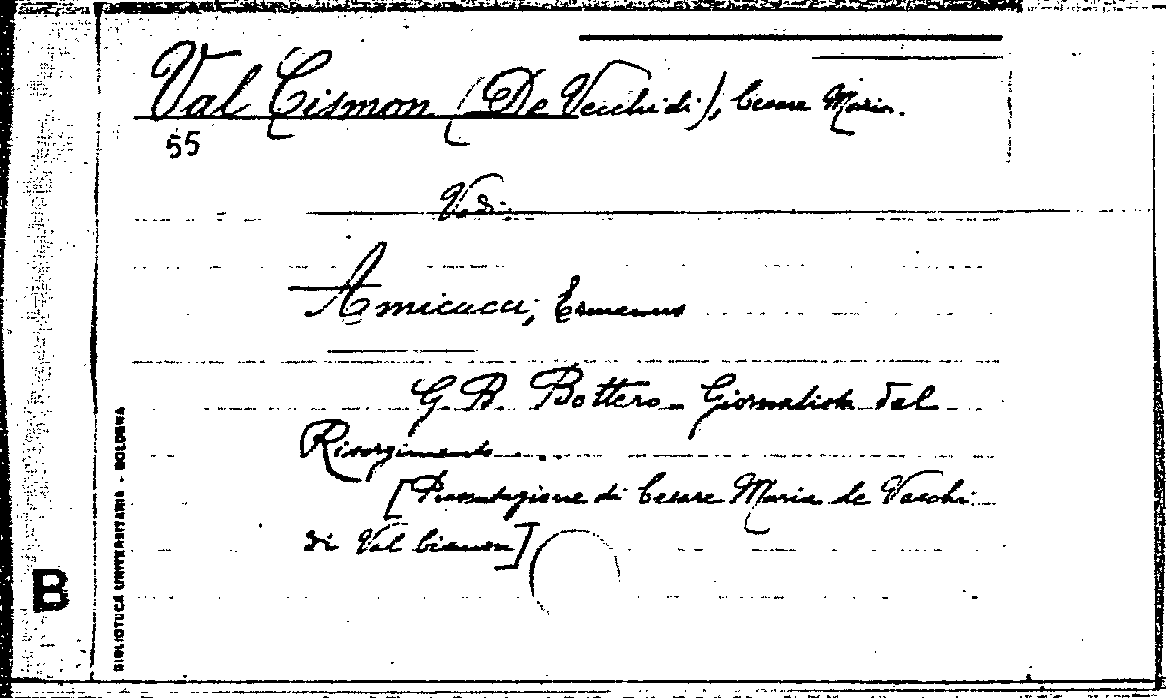 Val Cismon (De Vecchi di), Cesare Maria.
55
Vedi:
Amicucci, Ermanno
G. B. Bottero - Giornalista del
Risorgimento
[Presentazione di Cesare Maria de Vecchi
di Val Cismon]
B
BIBLIOTECA UNIVERSITARIA - BOLOGNA